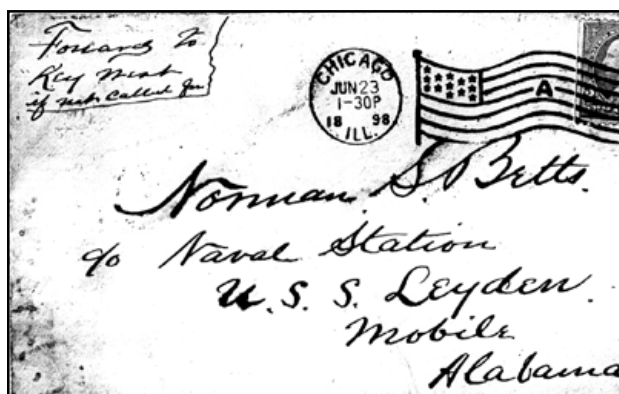 Forward to
Key West
if not called for
CHICAGO
JUN 23
1-30P
18 98
ILL.
A
Norman S. Betts.
c/o Naval Station
U. S. S. Leyden.
Mobile
Alabama